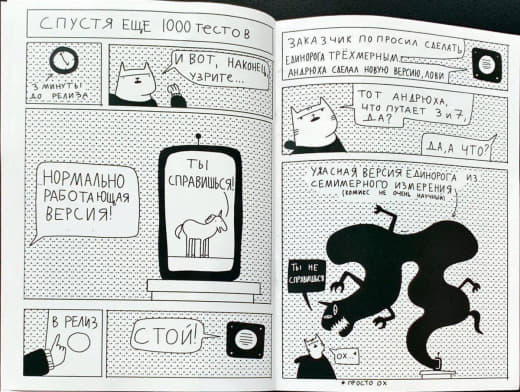 СПУСТЯ ЕЩЕ 1000 ТЕСТОВ
3 МИНУТЫ
ДО РЕЛИЗА
И ВОТ, НАКОНЕЦ,
УЗРИТЕ...
НОРМАЛЬНО
РАБОТАЮЩАЯ
ВЕРСИЯ!
ТЫ
СПРАВИШЬСЯ!
В РЕЛИЗ
СТОЙ!
ЗАКАЗЧИК ПОПРОСИЛ СДЕЛАТЬ
ЕДИНОРОГА ТРЁХМЕРНЫМ.
АНДРЮХА СДЕЛАЛ НОВУЮ ВЕРСИЮ, ЛОВИ
ТОТ АНДРЮХА,
ЧТО ПУТАЕТ 3 И 7,
ДА?
ДА, А ЧТО?
УЖАСНАЯ ВЕРСИЯ ЕДИНОРОГА ИЗ
СЕМИМЕРНОГО ИЗМЕРЕНИЯ
(КОМИКС НЕ ОЧЕНЬ НАУЧНЫЙ)
ТЫ НЕ
СПРАВИШЬСЯ
ОХ*
*ПРОСТО ОХ